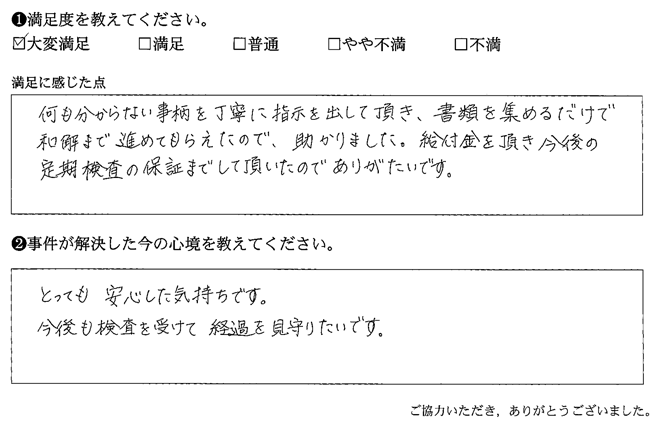 ❶満足度を教えてください。
☑大変満足 □満足 □普通 □やや不満 □不満
満足に感じた点
何も分からない事柄を丁寧に指示を出して頂き、書類を集めるだけで
和解まで進めてもらえたので、助かりました。給付金を頂き今後の
定期検査の保証までして頂いたのでありがたいです。
❷事件が解決した今の心境を教えてください。
とっても 安心した気持ちです。
今後も検査を受けて 経過を見守りたいです。
ご協力いただき，ありがとうございました。